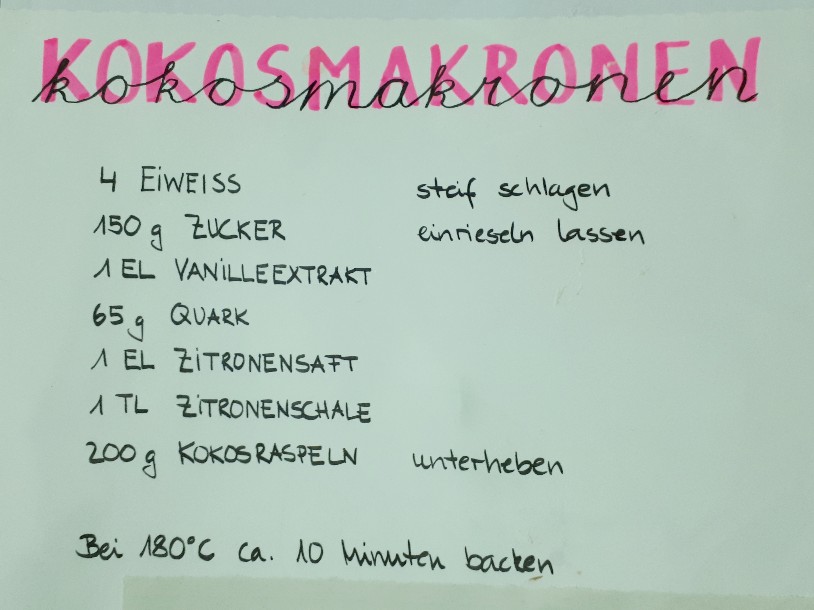 KOKOSMAKRONEN
kokosmakronen
4 EiWEISS steif schlagen
150 g ZUCKER einrieseln lassen
1 EL VANILLEEXTRAKT
65 g QUARK
1 EL ZiTRONENSAFT
1 TL ZiTRONENSCHALE
200 g KOKOSRASPELN unterheben
Bei 180°C ca. 10 Minuten backen